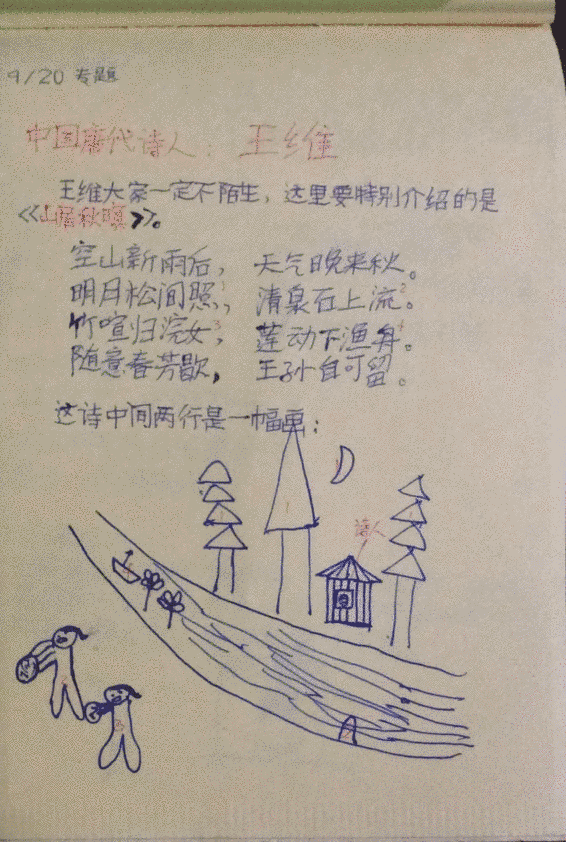 9/20 专题
中国唐代诗人：王维
王维大家一定不陌生，这里要特别介绍的是
《山居秋暝》。
空山新雨后，天气晚来秋。
明月松间照1，清泉石上流2。
竹喧归浣女3，莲动下渔舟4。
随意春芳歇，王孙自可留。
这诗中间两行是一幅画：
诗人
1
2
3
2